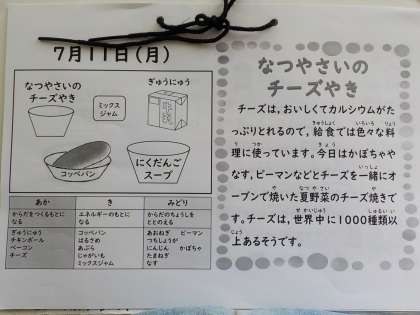 7月11日(月)
なつやさいの
チーズやき
ミックス
ジャム
ぎゅうにゅう
コッペパン
にくだんご
スープ
あか
き
みどり
からだをつくるもとに
なる
エネルギーのもとに
なる
からだのちょうしを
ととのえる
ぎゅうにゅう
チキンボール
ベーコン
チーズ
コッペパン
はるさめ
あぶら
じゃがいも
ミックスジャム
あおねぎ ピーマン
つちしょうが
にんじん かぼちゃ
たまねぎ
なす
なつやさいの
チーズやき
チーズは、おいしくてカルシウムがた
っぷりとれるので、給食では色々な料
理に使っています。今日はかぼちゃや
なす、ピーマンなどとチーズを一緒にオ
ーブンで焼いた夏野菜のチーズ焼きで
す。チーズは、世界中に1000種類以
上あるそうです。